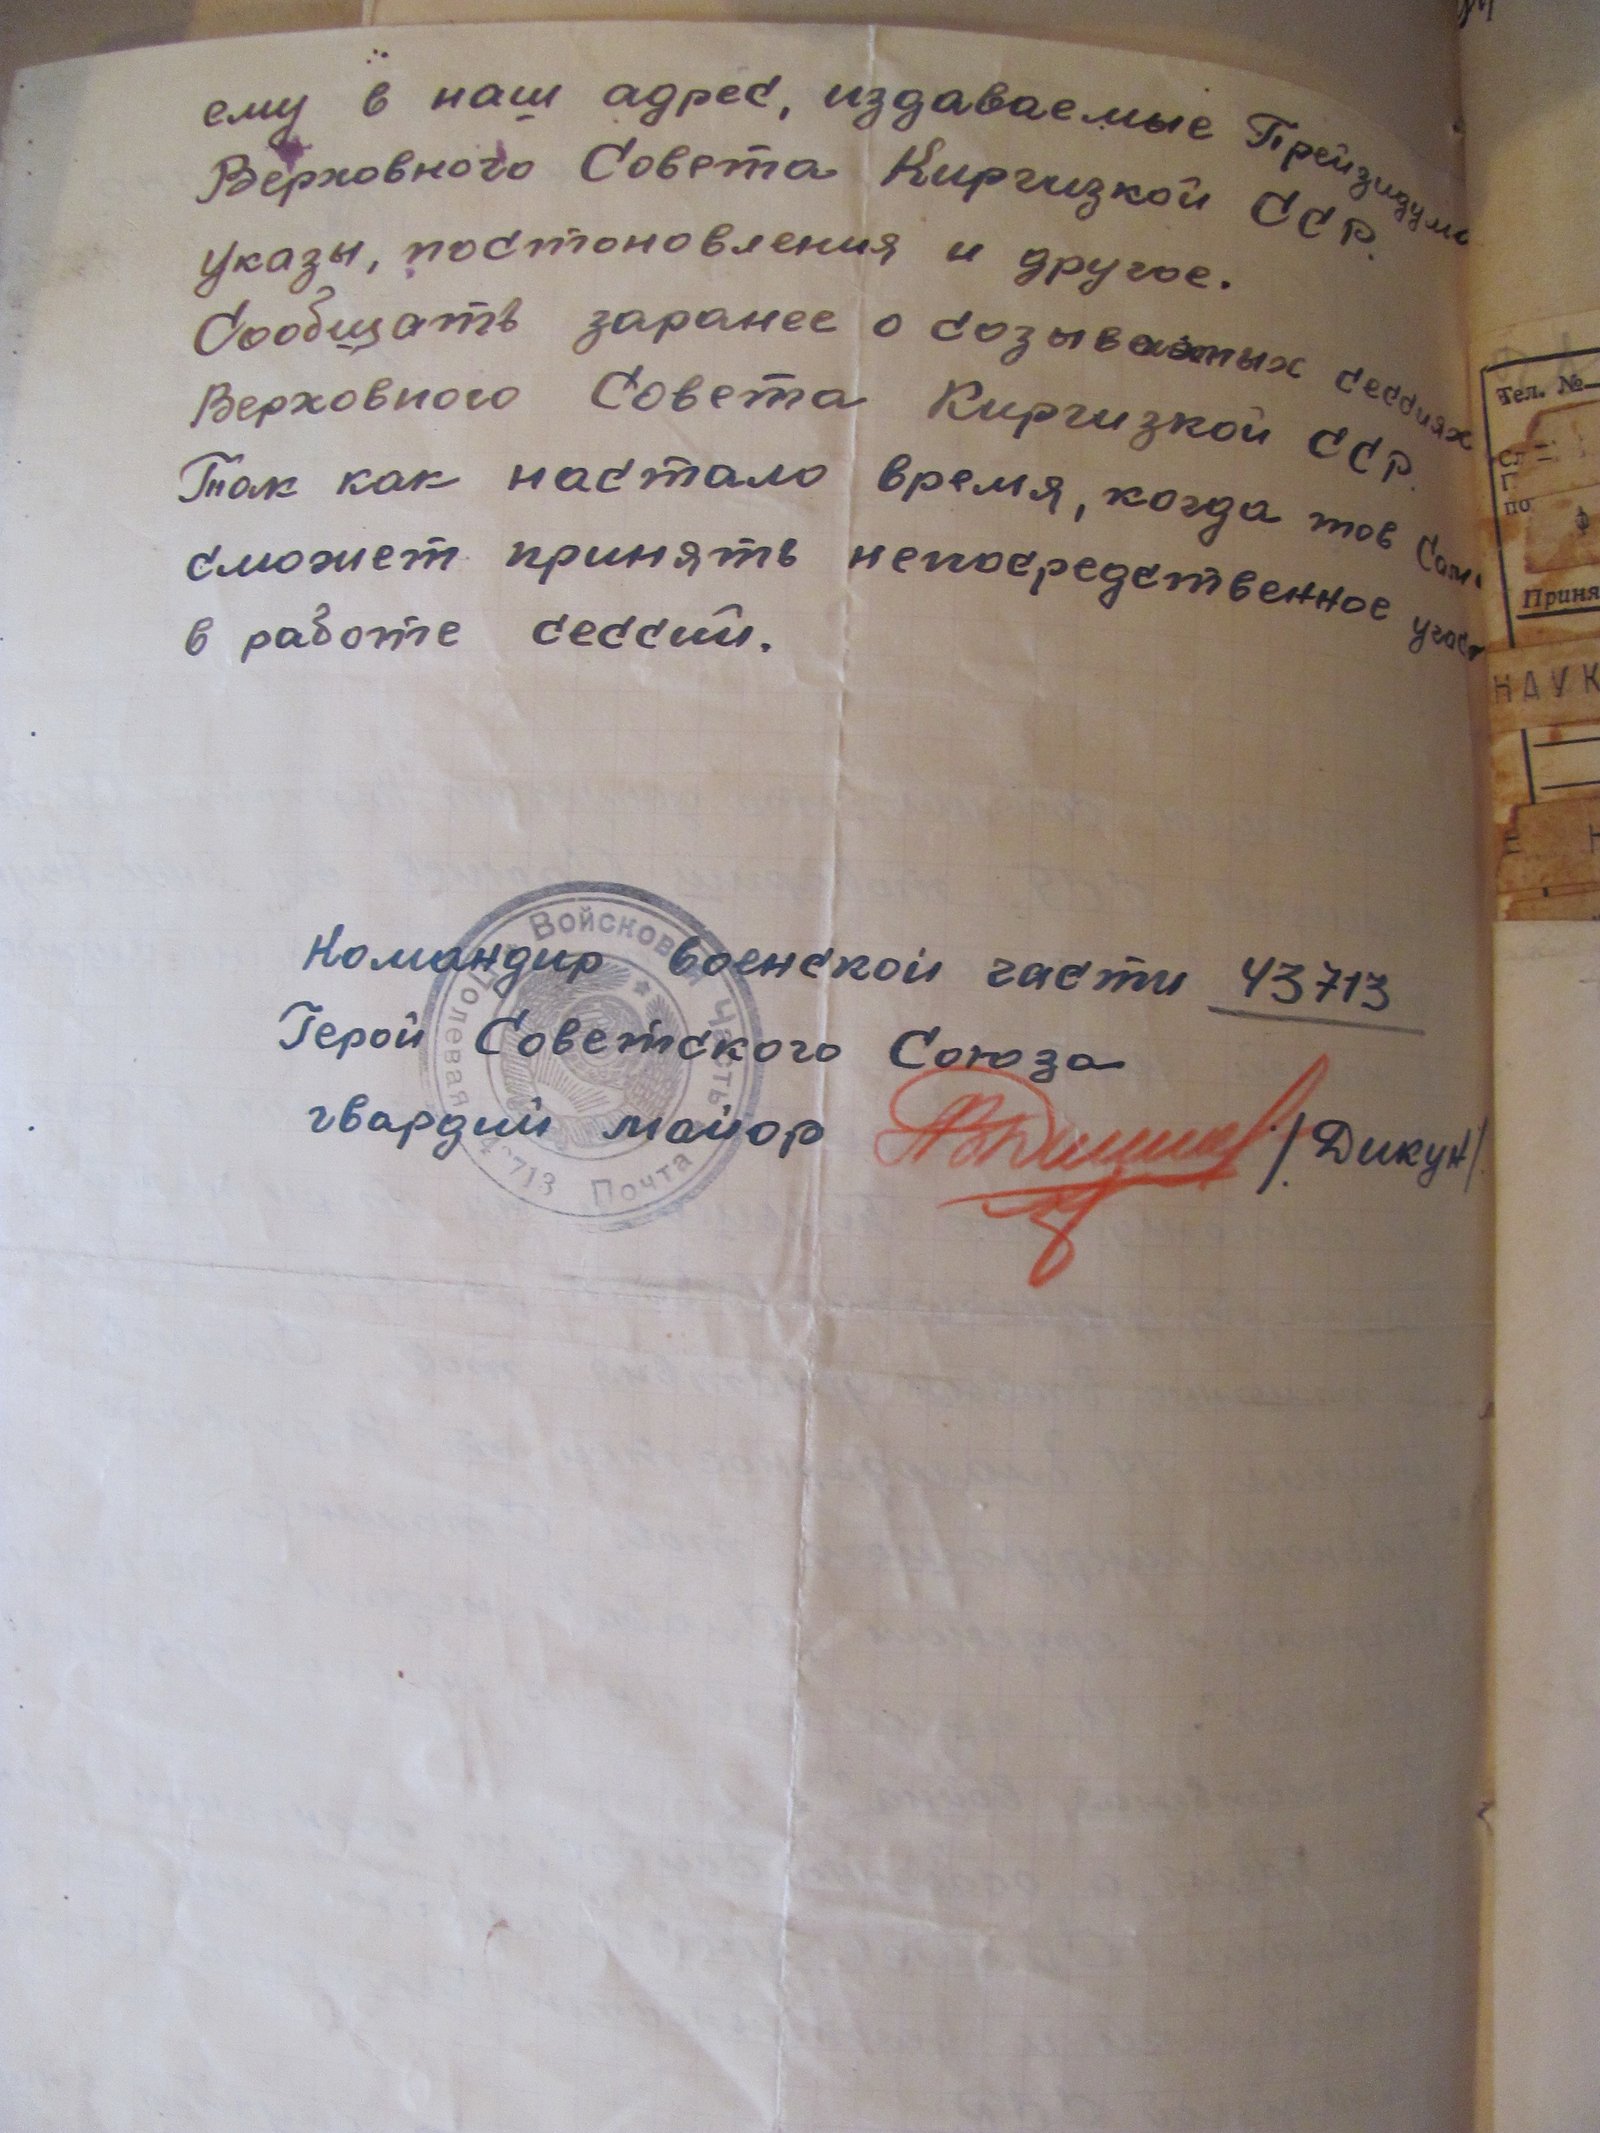 ему в наш адрес, издаваемые Прейзидумо
Верховного Совета Киргизкой ССР.
указы, постоновления и другое.
Сообщать заранее о созываемых сессиях
Верховного Совета Киргизкой ССР.
Так как настало время, когда тов
сможет принять непосредственное участ
в работе сессий.
Командир воснской части 43713
Герой Советского Союза
гвардий майор /Дикун/
Полевая Почта 43713 Войсковая Часть
Тел. №
по
Приня
НАУК